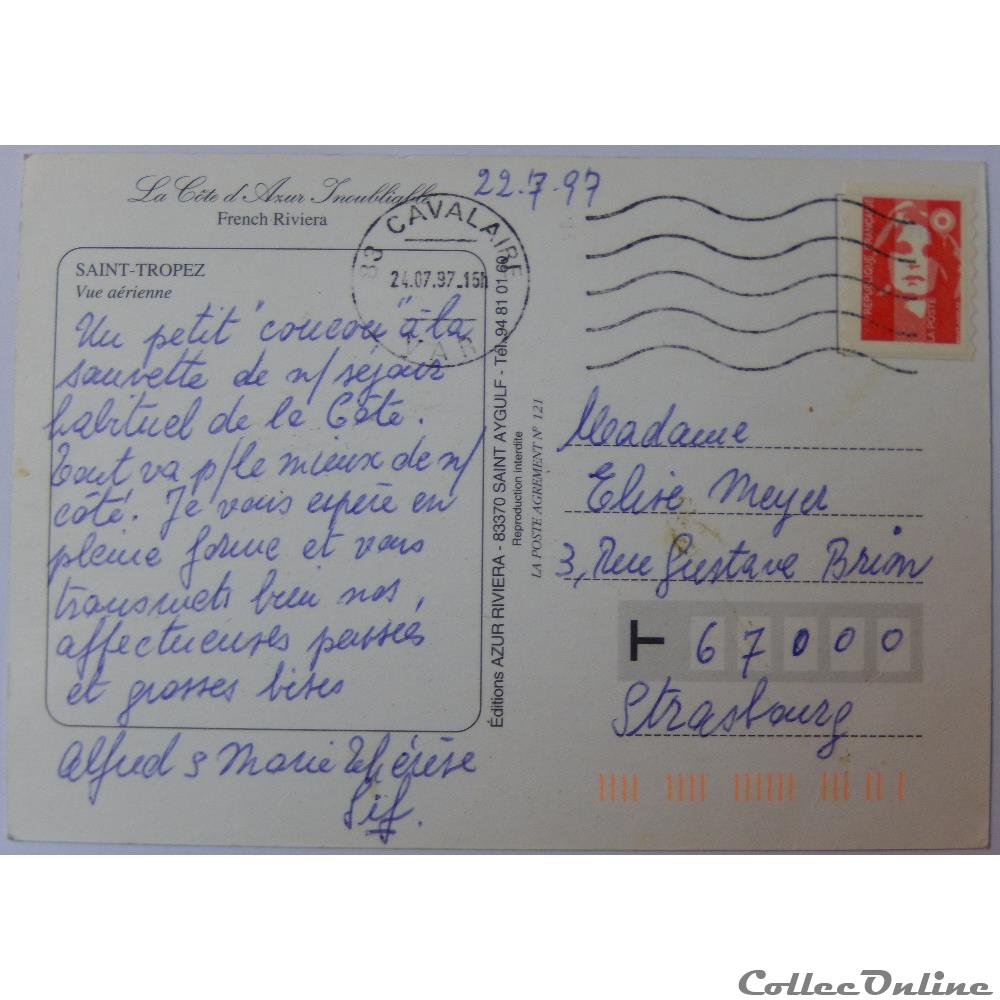 La Côte d'Azur Inoubliable
French Riviera
22.7.97
83 CAVALAIRE
24.07.97.15h
VAR
REPUBLIQUE FRANÇAISE
LA POSTE
SAINT-TROPEZ
Vue aérienne
Un petit "coucou" à la
sauvette de n/ séjour
habituel de la Côte.
Tout va p/le mieux de n/
côté. Je vous espère en
pleine forme et vous
transmets bien nos
affectueuses pensées
et grosses bises
Alfred & Marie Thérèse
Sif.
Éditions AZUR RIVIERA - 83370 SAINT AYGULF - Tél. 94 81 01 60
Reproduction interdite
LA POSTE AGREMENT N° 121
Madame
Elise Meyer
3, Rue Gustave Brion
T 67000
Strasbourg
CollecOnline